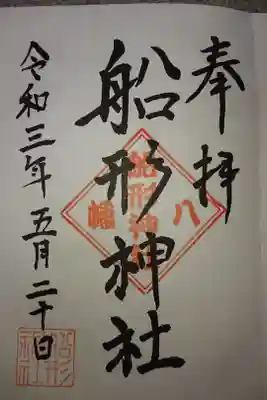 奉拝
船形神社
八幡
船形神社
令和三年五月二十日